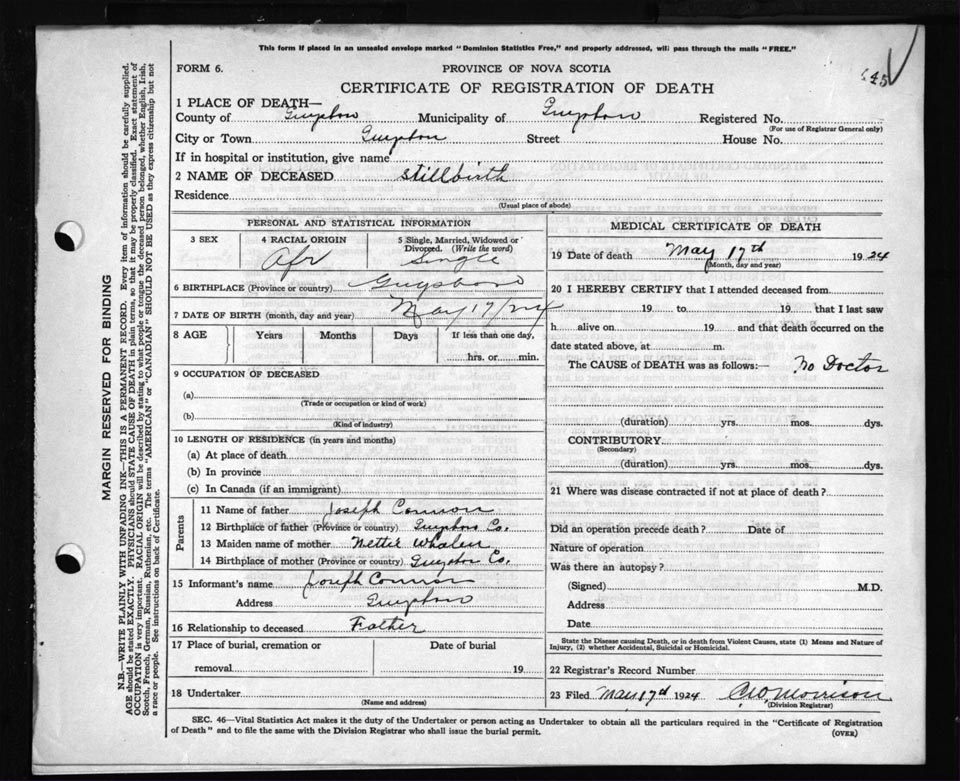 This form if placed in an unsealed envelope marked "Dominion Statistics Free," and properly addressed, will pass through the mails "FREE."
445
FORM 6.
PROVINCE OF NOVA SCOTIA
CERTIFICATE OF REGISTRATION OF DEATH
1 PLACE OF DEATH—
County of Guysboro Municipality of Guysboro Registered No.
(For use of Registrar General only)
City or Town Guysboro Street House No.
If in hospital or institution, give name
2 NAME OF DECEASED stillbirth
Residence
(Usual place of abode)
PERSONAL AND STATISTICAL INFORMATION
3 SEX
4 RACIAL ORIGIN
Afr
5 Single, Married, Widowed or Divorced. (Write the word)
Single
6 BIRTHPLACE (Province or country) Guysboro
7 DATE OF BIRTH (month, day and year) May 17/24
8 AGE Years Months Days If less than one day,
hrs. or min.
9 OCCUPATION OF DECEASED
(a)
(Trade or occupation or kind of work)
(b)
(Kind of industry)
10 LENGTH OF RESIDENCE (in years and months)
(a) At place of death
(b) In province
(c) In Canada (if an immigrant)
Parents
11 Name of father Joseph Connon
12 Birthplace of father (Province or country) Guysboro Co.
13 Maiden name of mother Nettie Whalen
14 Birthplace of mother (Province or country) Guysboro Co.
15 Informant's name Joseph Connon
Address Guysboro
16 Relationship to deceased Father
17 Place of burial, cremation or Date of burial
removal 19
18 Undertaker
(Name and address)
MEDICAL CERTIFICATE OF DEATH
19 Date of death May 17th 1924
(Month, day and year)
20 I HEREBY CERTIFY that I attended deceased from
19 to 19 that I last saw
h alive on 19 and that death occurred on the
date stated above, at m.
The CAUSE of DEATH was as follows:— No Doctor
(duration) yrs. mos. dys.
CONTRIBUTORY
(Secondary)
(duration) yrs. mos. dys.
21 Where was disease contracted if not at place of death?
Did an operation precede death? Date of
Nature of operation
Was there an autopsy?
(Signed) M.D.
Address
Date
State the Disease causing Death, or in death from Violent Causes, state (1) Means and Nature of
Injury, (2) whether Accidental, Suicidal or Homicidal.
22 Registrar's Record Number
23 Filed May 17th 1924 C. O. Morrison
(Division Registrar)
SEC. 46—Vital Statistics Act makes it the duty of the Undertaker or person acting as Undertaker to obtain all the particulars required in the "Certificate of Registration
of Death" and to file the same with the Division Registrar who shall issue the burial permit.
(OVER)
MARGIN RESERVED FOR BINDING
N.B.—WRITE PLAINLY WITH UNFADING INK—THIS IS A PERMANENT RECORD. Every item of information should be carefully supplied.
AGE should be stated EXACTLY. PHYSICIANS should STATE CAUSE OF DEATH in plain terms, so that it may be properly classified. Exact statement of
OCCUPATION is very important. RACIAL ORIGIN will be described by stating to what people or tongue the deceased person belonged, whether English, Irish,
Scotch, French, German, Russian, Ruthenian, etc. The terms "AMERICAN" or "CANADIAN" SHOULD NOT BE USED as they express citizenship but not
a race or people. See instructions on back of Certificate.